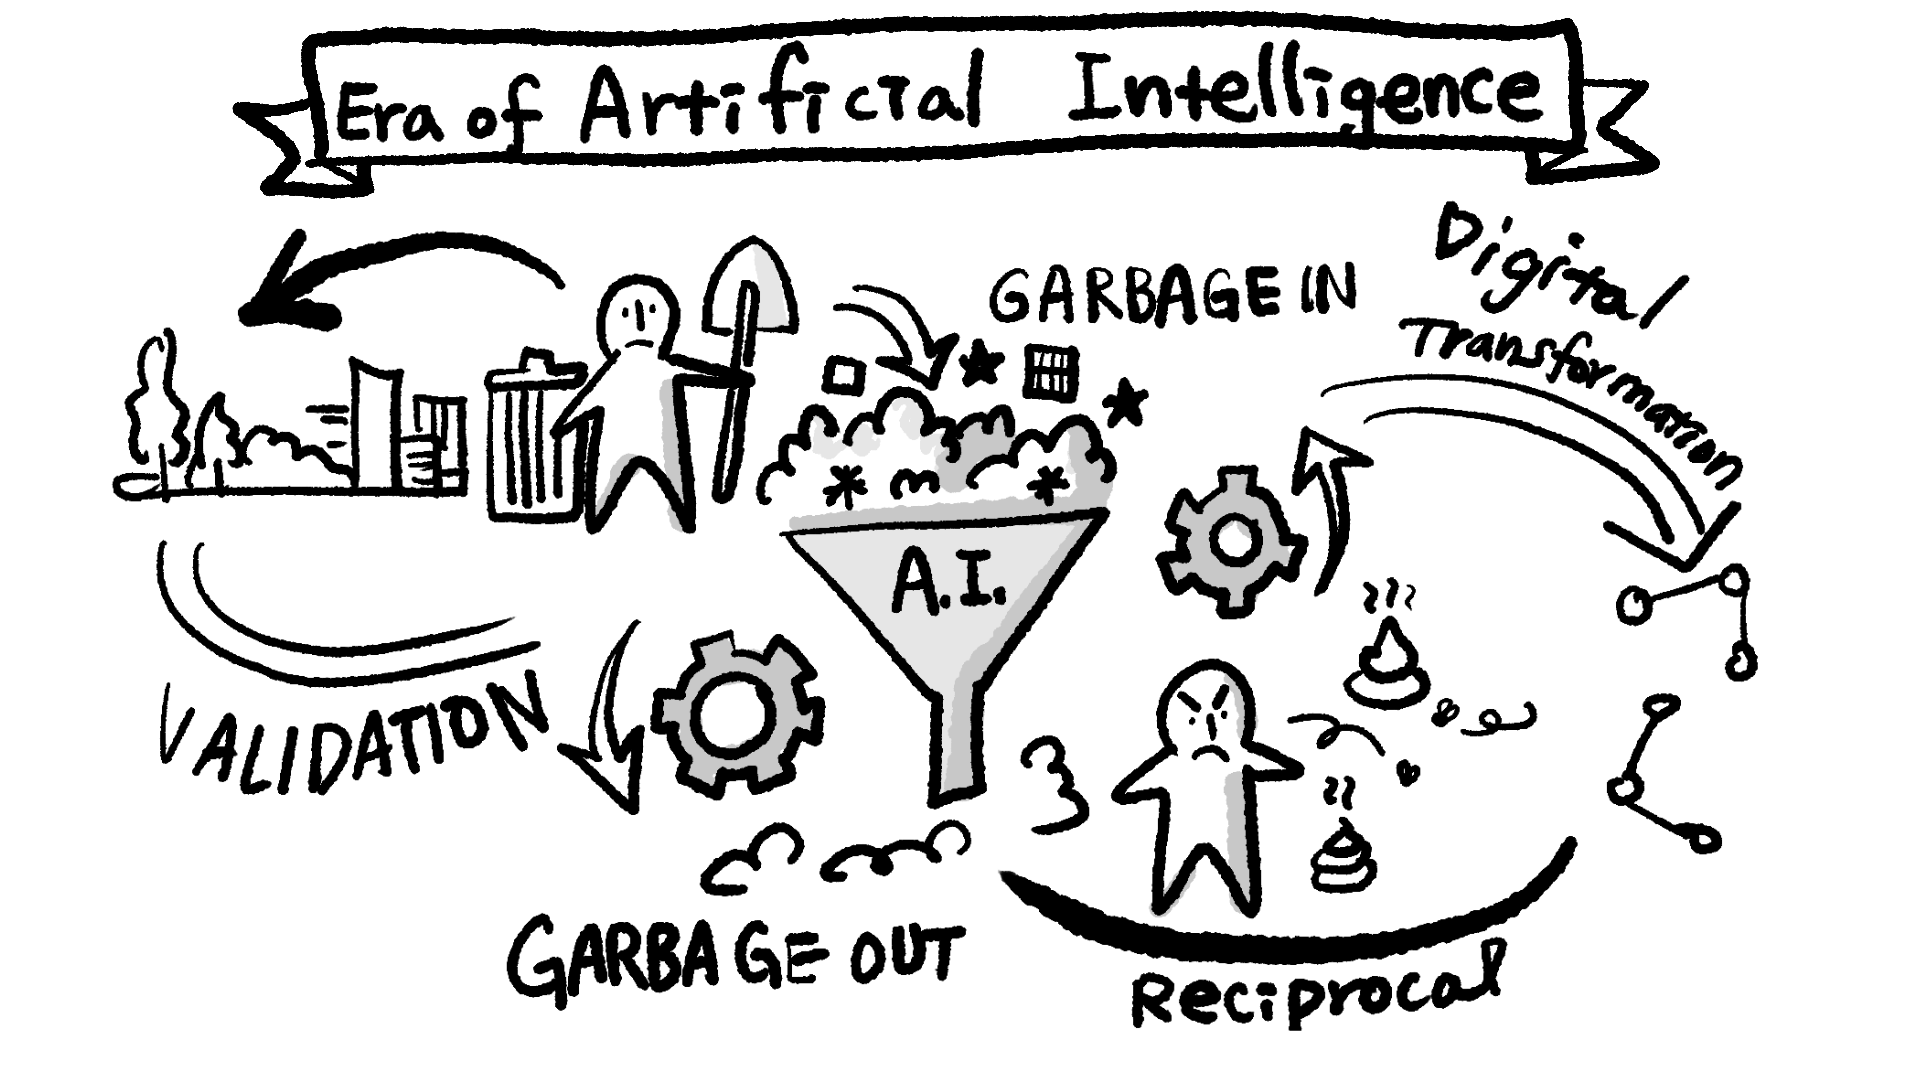 Era of Artificial Intelligence
GARBAGE IN
Digital
Transformation
A.I.
VALIDATION
GARBAGE OUT
Reciprocal